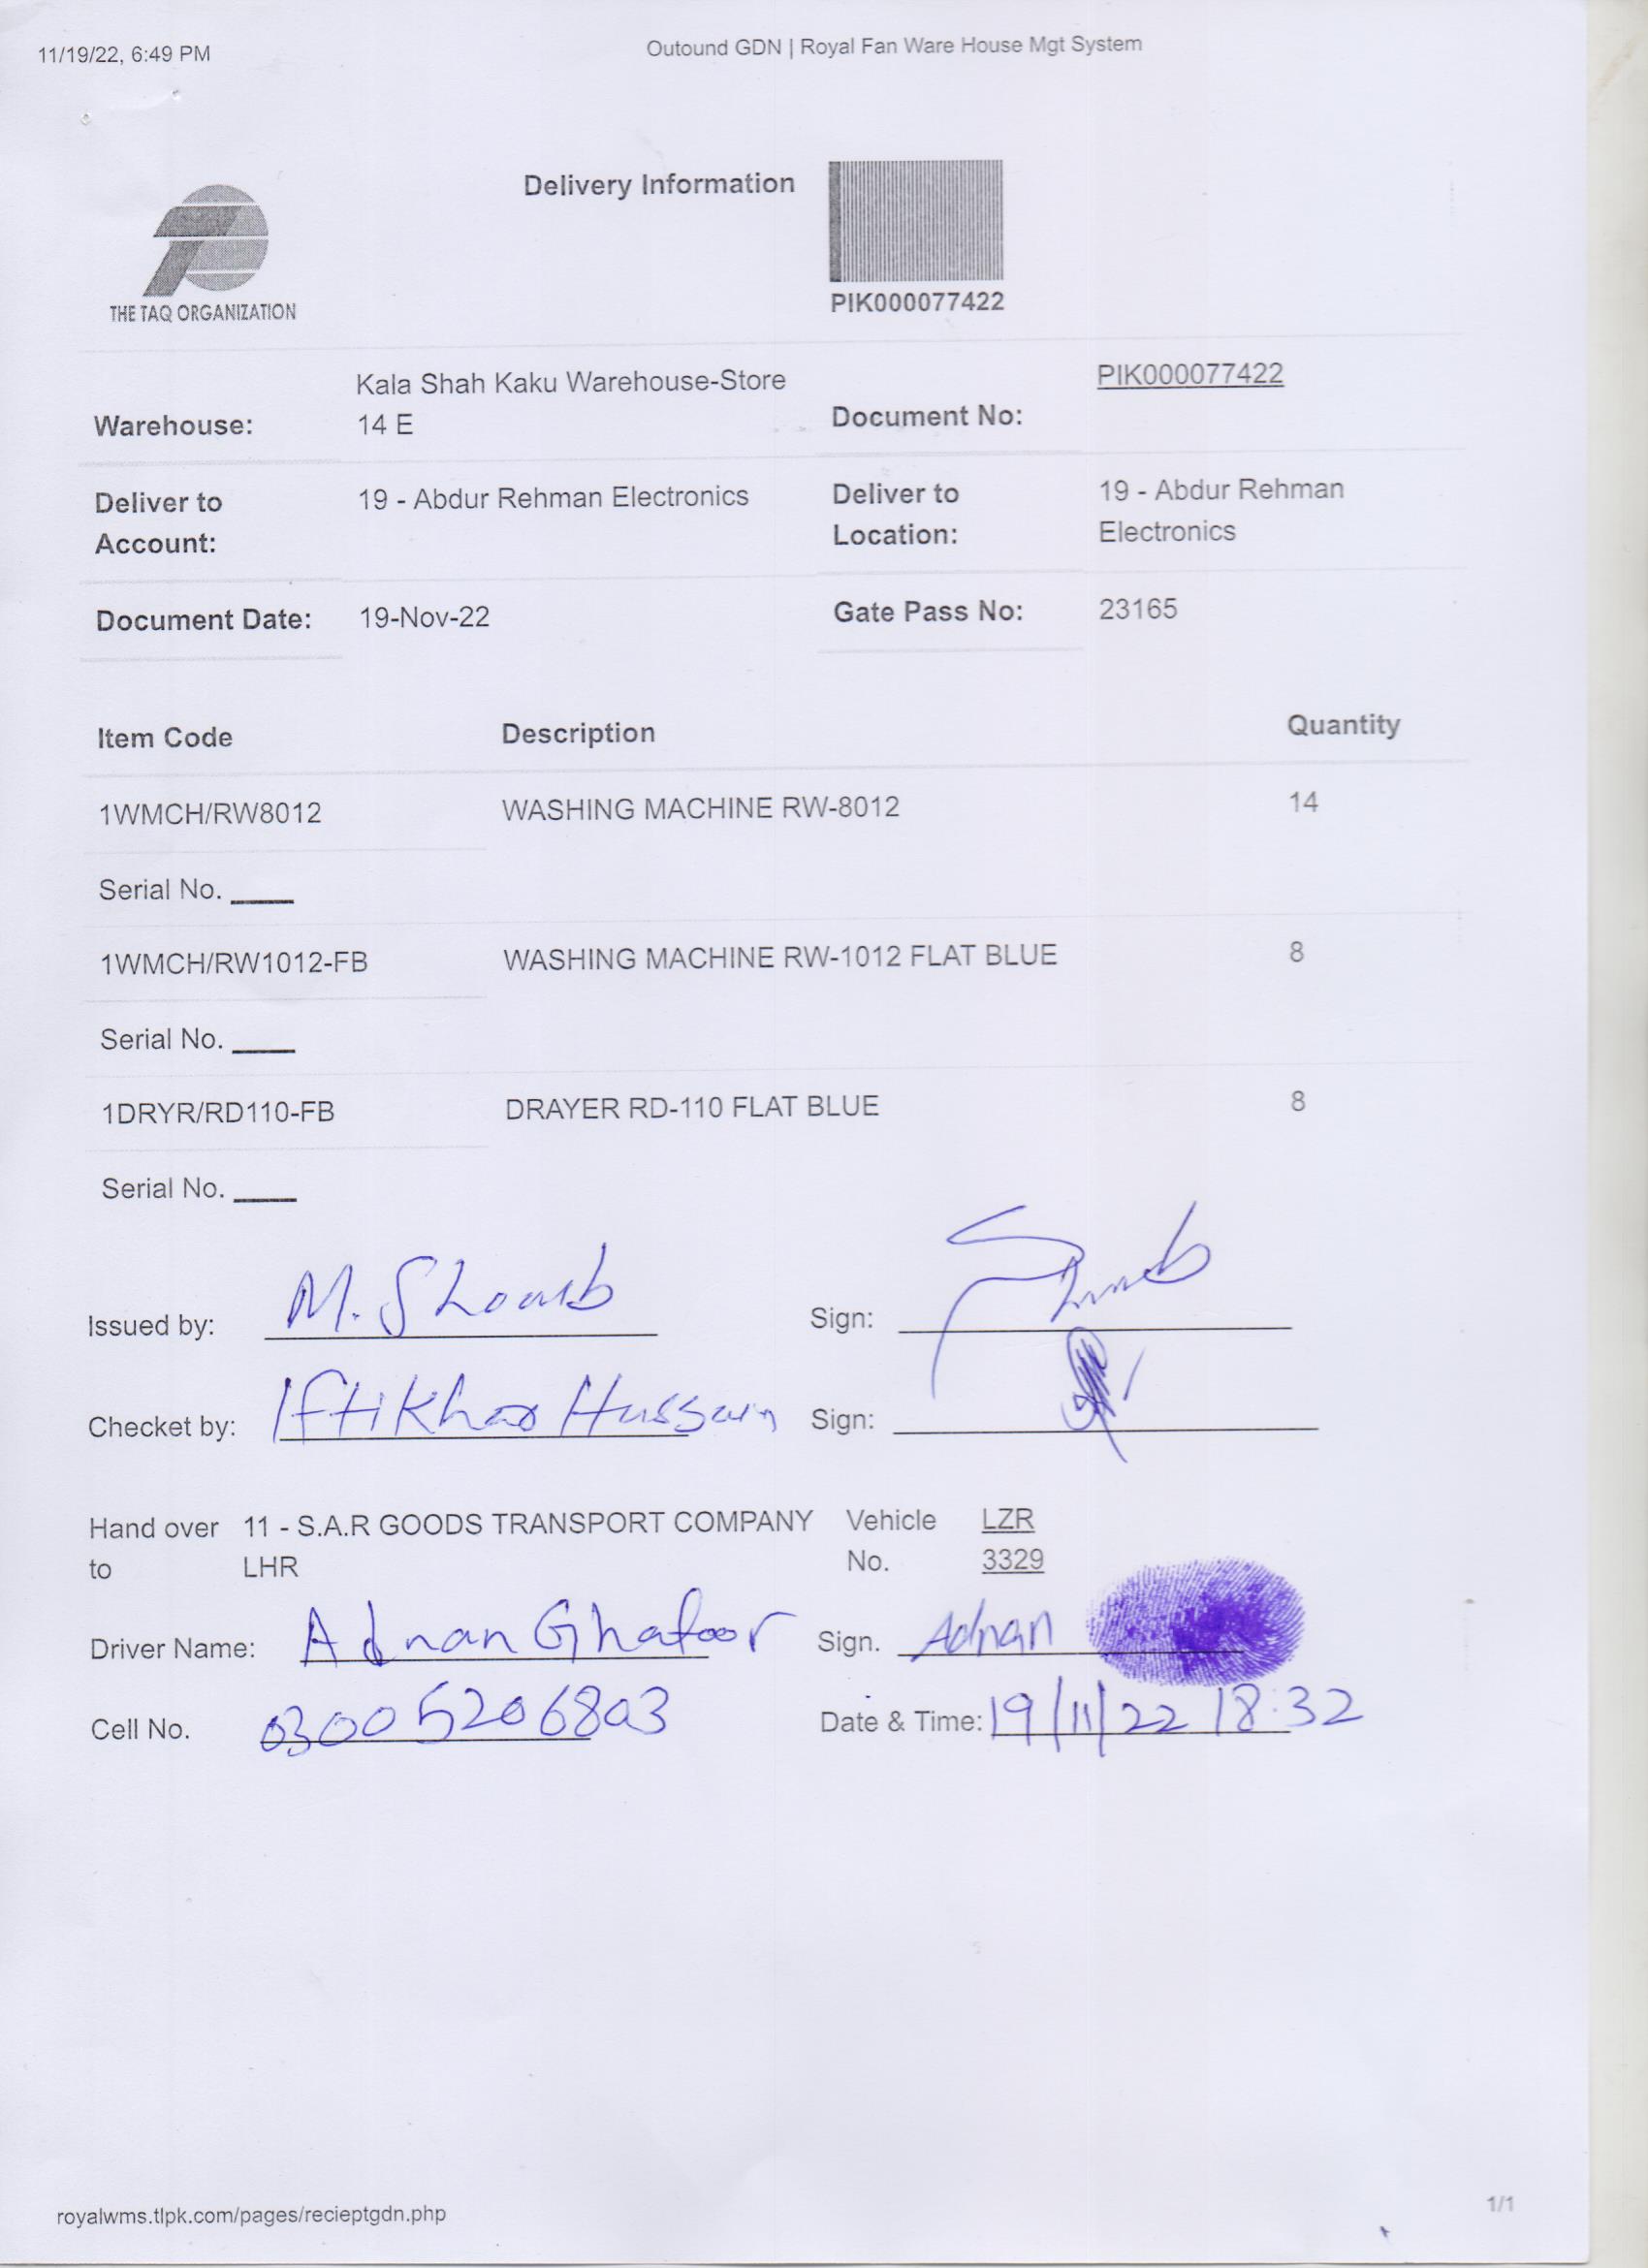 11/19/22, 6:49 PM
Outound GDN | Royal Fan Ware House Mgt System
Delivery Information
THE TAQ ORGANIZATION
PIK000077422
Kala Shah Kaku Warehouse-Store
PIK000077422
Warehouse: 14 E Document No:
Deliver to 19 - Abdur Rehman Electronics Deliver to 19 - Abdur Rehman
Account: Location: Electronics
Document Date: 19-Nov-22 Gate Pass No: 23165
Item Code Description Quantity
1WMCH/RW8012 WASHING MACHINE RW-8012 14
Serial No.
1WMCH/RW1012-FB WASHING MACHINE RW-1012 FLAT BLUE 8
Serial No.
1DRYR/RD110-FB DRAYER RD-110 FLAT BLUE 8
Serial No.
Issued by: M. Shoaib Sign:
Checket by: Iftikhar Hussain Sign:
Hand over 11 - S.A.R GOODS TRANSPORT COMPANY Vehicle LZR
to LHR No. 3329
Driver Name: Adnan Ghafoor Sign. Adnan
Cell No. 03005206803 Date & Time: 19/11/22 18:32
royalwms.tlpk.com/pages/recieptgdn.php
1/1